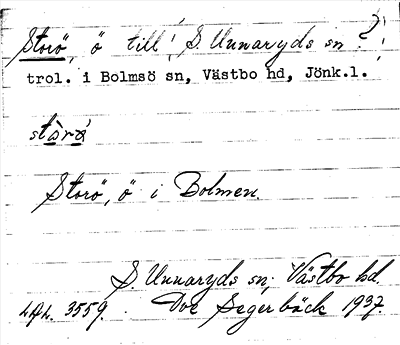 Storö, ö till S. Unnaryds sn?
trol. i Bolmsö sn, Västbo hd, Jönk.l.
Storö, ö i Bolmen.
S. Unnaryds sn, Västbo hd.
3559. Ove Segerbäck 1937.